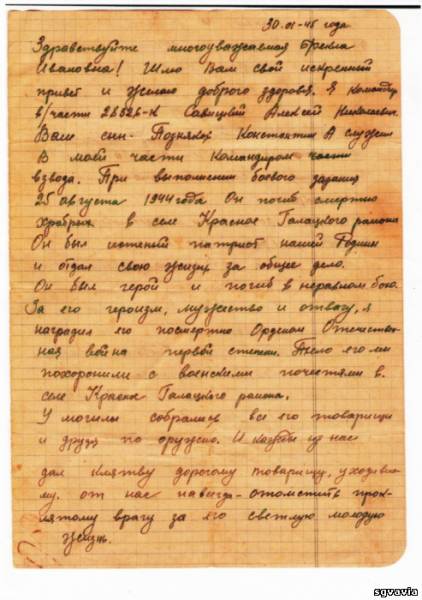 30.01-45 года
Здравствуйте многоуважаемая Фрекла
Ивановна! Шлю Вам свой искренний
привет и желаю доброго здоровя. Я командир
в/части 28326-К Савицкий Алексей Николаевич.
Ваш сын - Позняков Константин А служил
В моей части Командиром части
взвода. При выполнении боевого задания
25 августа 1944 года Он погиб смертью
храбрых в селе Красное Галацкого района
Он был истеный патриот нашей Родины
и отдал свою жизнь за общее дело.
Он был герой и погиб в неравном бою.
За его героизм, мужество и отвагу, я
наградил его посмертно Орденом Отечествен-
ная война первой степени. Тело его мы
похоронили с воинскими почестями в.
селе Красна Галацкого района.
У могилы собрались все его товарищи
и друзя по оружию. И каждый из нас
дал клятву дорогому товарищу, уходивше-
му. от нас навсегда - отомстить прок-
лятому врагу за его светлую молодую
жизнь.
sgvavia